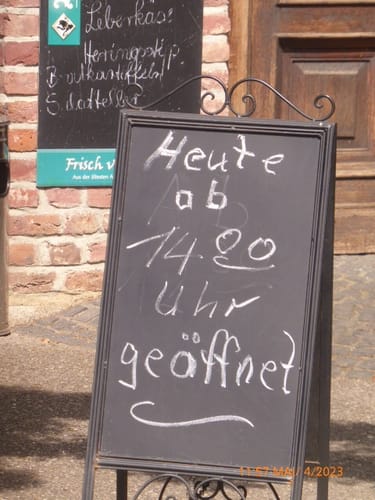 Leberkäs:
Heringsstip.
Bratkartoffeln
Salatteller
Frisch v
Heute
ab
14.00
Uhr
geöffnet
11:57 MAI/ 4/2023